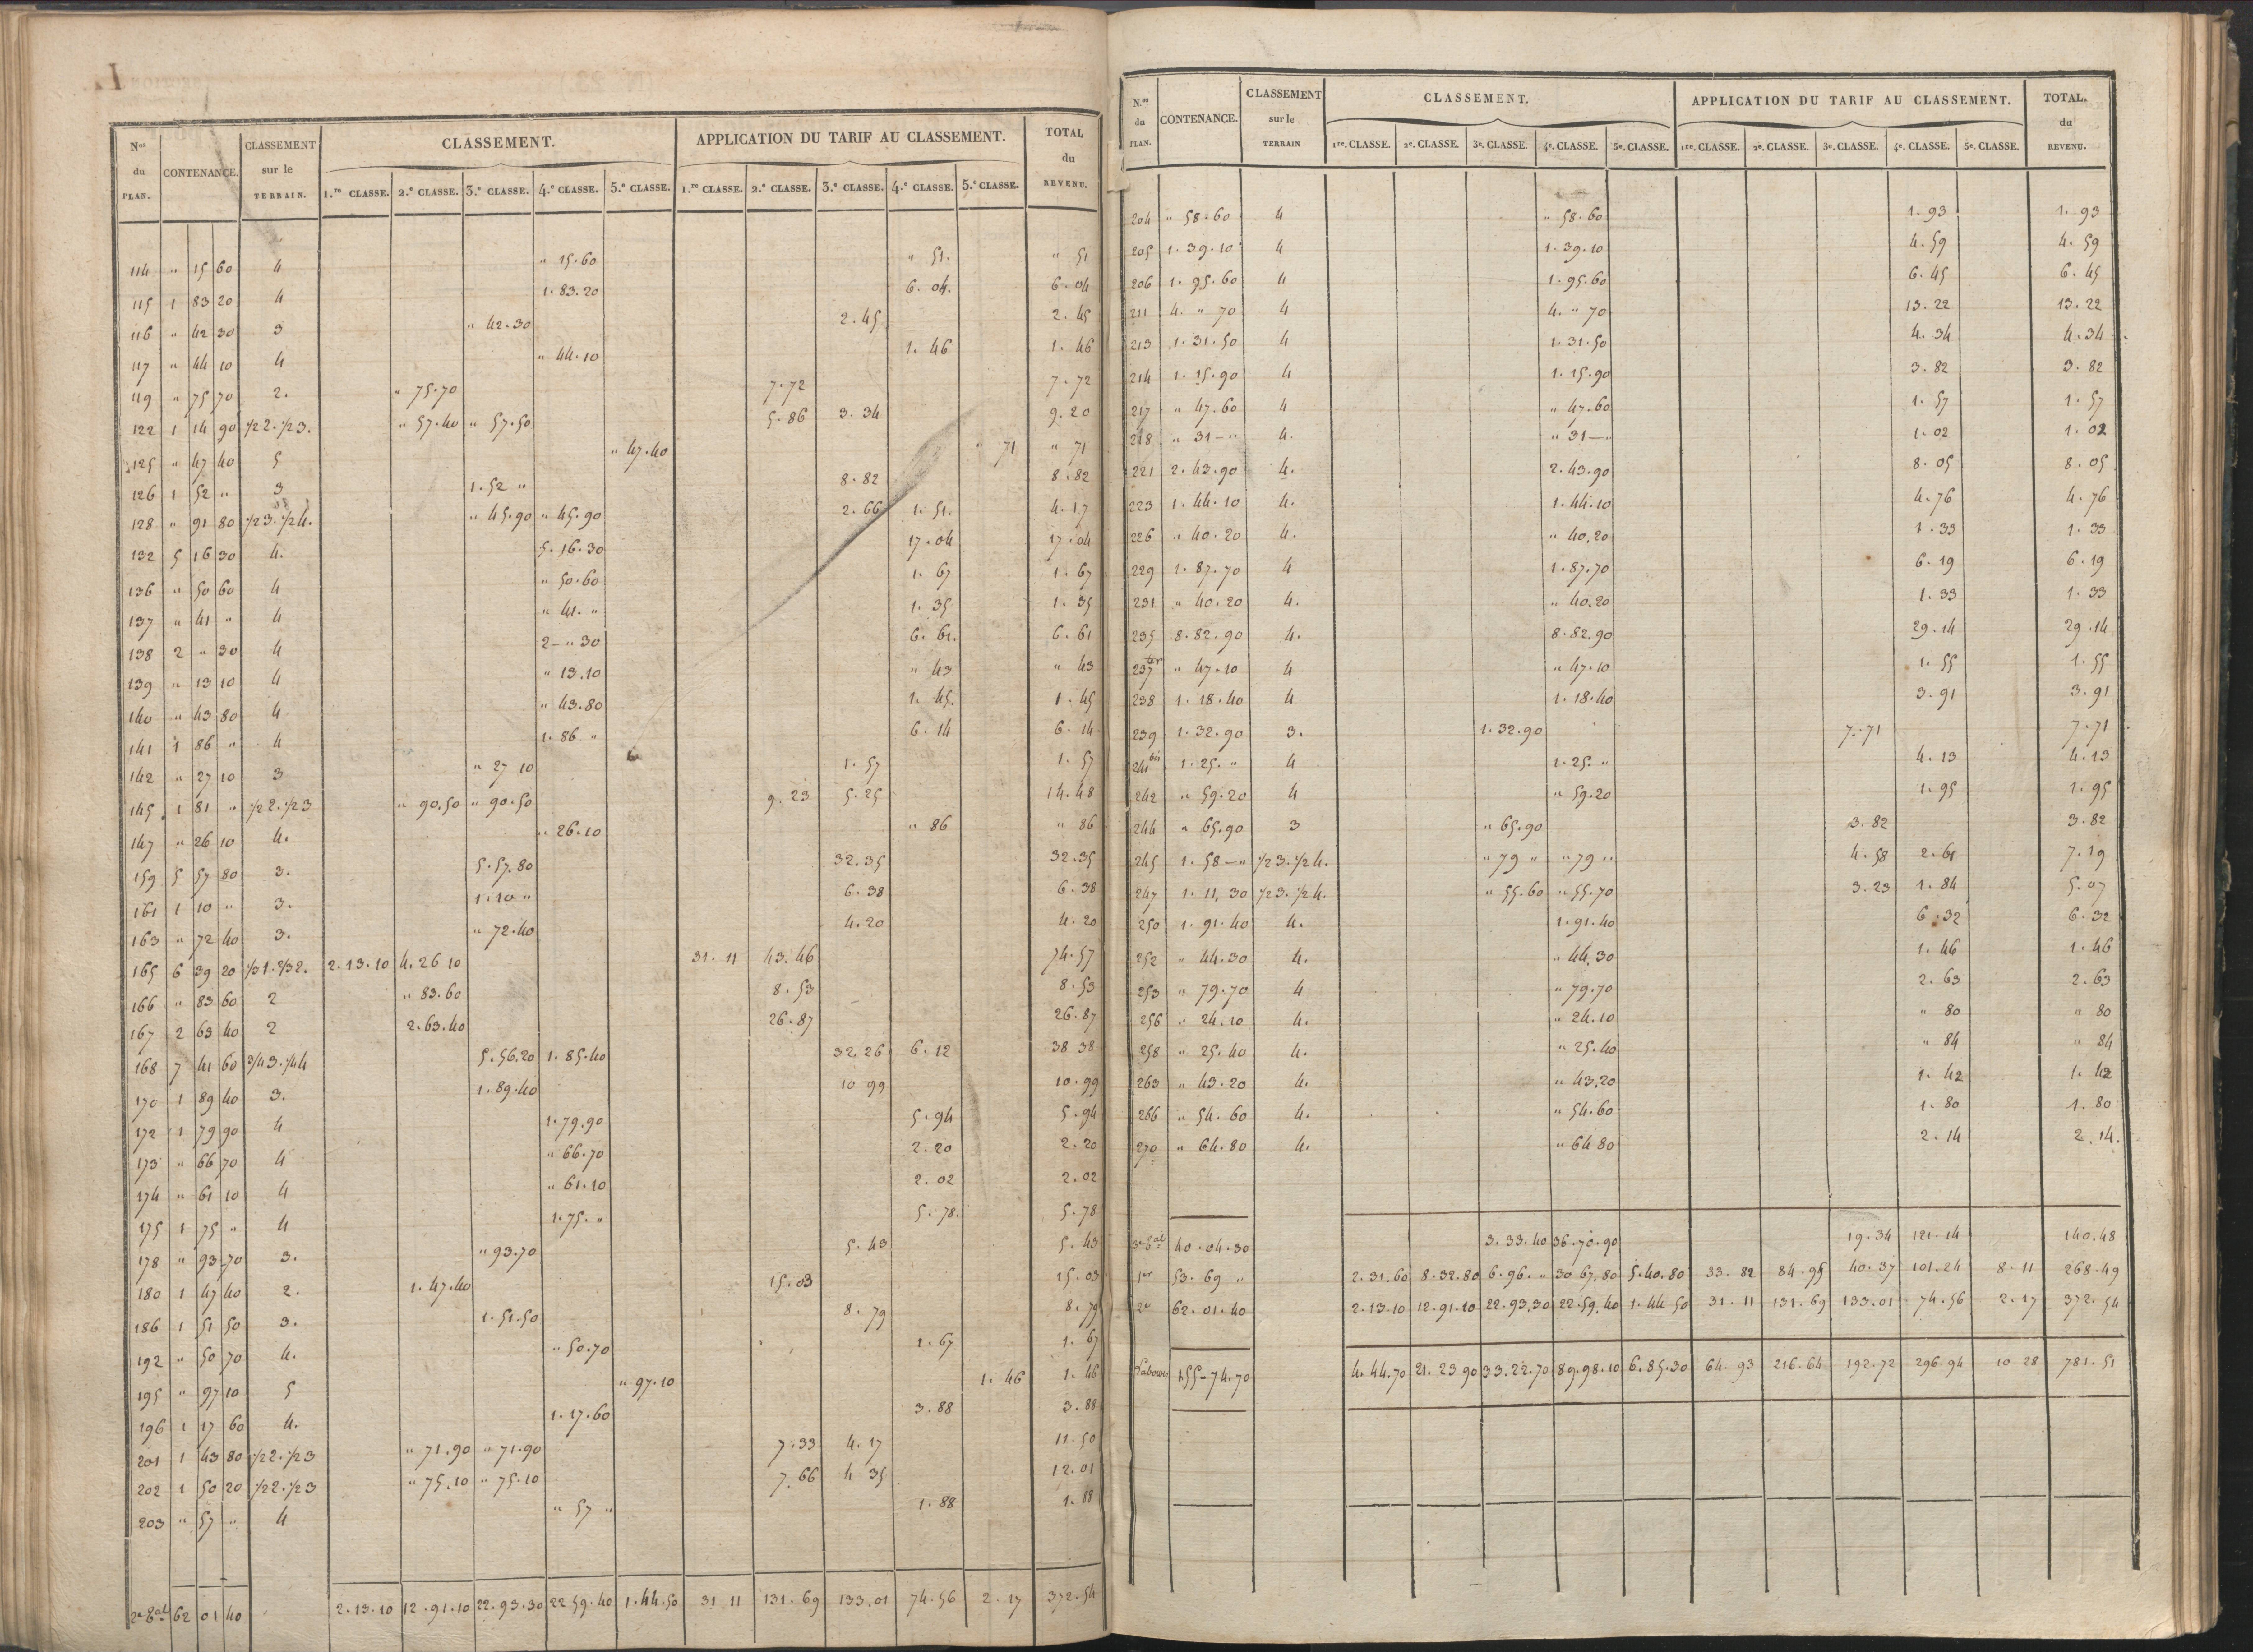 N.os du PLAN. CONTENANCE. CLASSEMENT sur le TERRAIN. CLASSEMENT. APPLICATION DU TARIF AU CLASSEMENT. TOTAL du REVENU.
1.re CLASSE. 2.e CLASSE. 3.e CLASSE. 4.e CLASSE. 5.e CLASSE. 1.re CLASSE. 2.e CLASSE. 3.e CLASSE. 4.e CLASSE. 5.e CLASSE.
114 " 15 60 4 " 15.60 " 51. " 51
115 1 83 20 4 1.83.20 6.04. 6.04
116 " 42 30 3 " 42.30 2.45 2.45
117 " 44 10 4 " 44.10 1.46 1.46
119 " 75 70 2. " 75.70 7.72 7.72
122 1 14 90 1/2 2. 1/2 3. " 57.40 " 57.50 5.86 3.34 9.20
125 " 47 40 5 " 47.40 " 71 " 71
126 1 52 " 3 1.52 " 8.82 8.82
128 " 91 80 1/2 3. 1/2 4. " 45.90 " 45.90 2.66 1.51. 4.17
132 5 16 30 4. 5.16.30 17.04 17.04
136 " 50 60 4 " 50.60 1.67 1.67
137 " 41 " 4 " 41. " 1.35 1.35
138 2 " 30 4 2 - " 30 6.61. 6.61
139 " 13 10 4 " 13.10 " 43 " 43
140 " 43 80 4 " 43.80 1.45. 1.45
141 1 86 " 4 1.86 " 6.14 6.14
142 " 27 10 3 " 27 10 1.57 1.57
145 1 81 " 1/2 2. 1/2 3 " 90.50 " 90.50 9.23 5.25 14.48
147 " 26 10 4. " 26.10 " 86 " 86
159 5 57 80 3. 5.57.80 32.35 32.35
161 1 10 " 3. 1.10 " 6.38 6.38
163 " 72 40 3. " 72.40 4.20 4.20
165 6 39 20 1/3 1. 2/3 2. 2.13.10 4.26 10 31.11 43.46 74.57
166 " 83 60 2 " 83.60 8.53 8.53
167 2 63 40 2 2.63.40 26.87 26.87
168 7 41 60 3/4 3. 1/4 4 5.56.20 1.85.40 32.26 6.12 38 38
170 1 89 40 3. 1.89.40 10 99 10.99
172 1 79 90 4 1.79.90 5.94 5.94
173 " 66 70 4 " 66.70 2.20 2.20
174 " 61 10 4 " 61.10 2.02 2.02
175 1 75 " 4 1.75. " 5.78. 5.78
178 " 93 70 3. " 93.70 5.43 5.43
180 1 47 40 2. 1.47.40 15.03 15.03
186 1 51 50 3. 1.51.50 8.79 8.79
192 " 50 70 4. " 50.70 1.67 1.67
195 " 97 10 5 " 97.10 1.46 1.46
196 1 17 60 4. 1.17.60 3.88 3.88
201 1 43 80 1/2 2. 1/2 3 " 71.90 " 71.90 7.33 4.17 11.50
202 1 50 20 1/2 2. 1/2 3 " 75.10 " 75.10 7.66 4 35 12.01
203 " 57 " 4 " 57 " 1.88 1.88
62 01 40 2.13.10 12.91.10 22.93.30 22 59.40 1.44.50 31 11 131.69 133.01 74.56 2.17 372.54
N.os du PLAN. CONTENANCE. CLASSEMENT sur le TERRAIN CLASSEMENT. APPLICATION DU TARIF AU CLASSEMENT. TOTAL. du REVENU.
1re. CLASSE. 2e. CLASSE. 3e. CLASSE. 4e. CLASSE. 5e. CLASSE. 1re. CLASSE. 2e. CLASSE. 3e. CLASSE. 4e. CLASSE. 5e. CLASSE.
204 " 58.60 4 " 58.60 1.93 1.93
205 1.39.10 4 1.39.10 4.59 4.59
206 1.95.60 4 1.95.60 6.45 6.45
211 4. " 70 4 4. " 70 13.22 13.22
213 1.31.50 4 1.31.50 4.34 4.34
214 1.15.90 4 1.15.90 3.82 3.82
217 " 47.60 4 " 47.60 1.57 1.57
218 " 31 - " 4. " 31 - " 1.02 1.02
221 2.43.90 4. 2.43.90 8.05 8.05
223 1.44.10 4. 1.44.10 4.76 4.76
226 " 40.20 4. " 40.20 1.33 1.33
229 1.87.70 4 1.87.70 6.19 6.19
231 " 40.20 4. " 40.20 1.33 1.33
235 8.82.90 4. 8.82.90 29.14 29.14
237 ter " 47.10 4 " 47.10 1.55 1.55
238 1.18.40 4 1.18.40 3.91 3.91
239 1.32.90 3. 1.32.90 7.71 7.71
241 bis 1.25. " 4 1.25. " 4.13 4.13
242 " 59.20 4 " 59.20 1.95 1.95
244 " 65.90 3 " 65.90 3.82 3.82
245 1.58 - " 1/2 3. 1/2 4. " 79 " " 79 " 4.58 2.61 7.19
247 1.11.30 1/2 3. 1/2 4. " 55.60 " 55.70 3.23 1.84 5.07
250 1.91.40 4. 1.91.40 6.32 6.32
252 " 44.30 4. " 44.30 1.46 1.46
253 " 79.70 4 " 79.70 2.63 2.63
256 " 24.10 4. " 24.10 " 80 " 80
258 " 25.40 4. " 25.40 " 84 " 84
263 " 43.20 4. " 43.20 1.42 1.42
266 " 54.60 4. " 54.60 1.80 1.80
270 " 64.80 4. " 64 80 2.14 2.14.
40.04.30 3.33.40 36.70.90 19.34 121.14 140.48
1er 53.69 " 2.31.60 8.32.80 6.96. " 30 67.80 5.40.80 33.82 84.95 40.37 101.24 8.11 268.49
2e 62.01.40 2.13.10 12.91.10 22.93.30 22.59.40 1.44 50 31.11 131.69 133.01 74.56 2.17 372.54
Labours 155-74.70 4.44.70 21.23 90 33.22.70 89.98.10 6.85.30 64.93 216.64 192.72 296.94 10 28 781.51